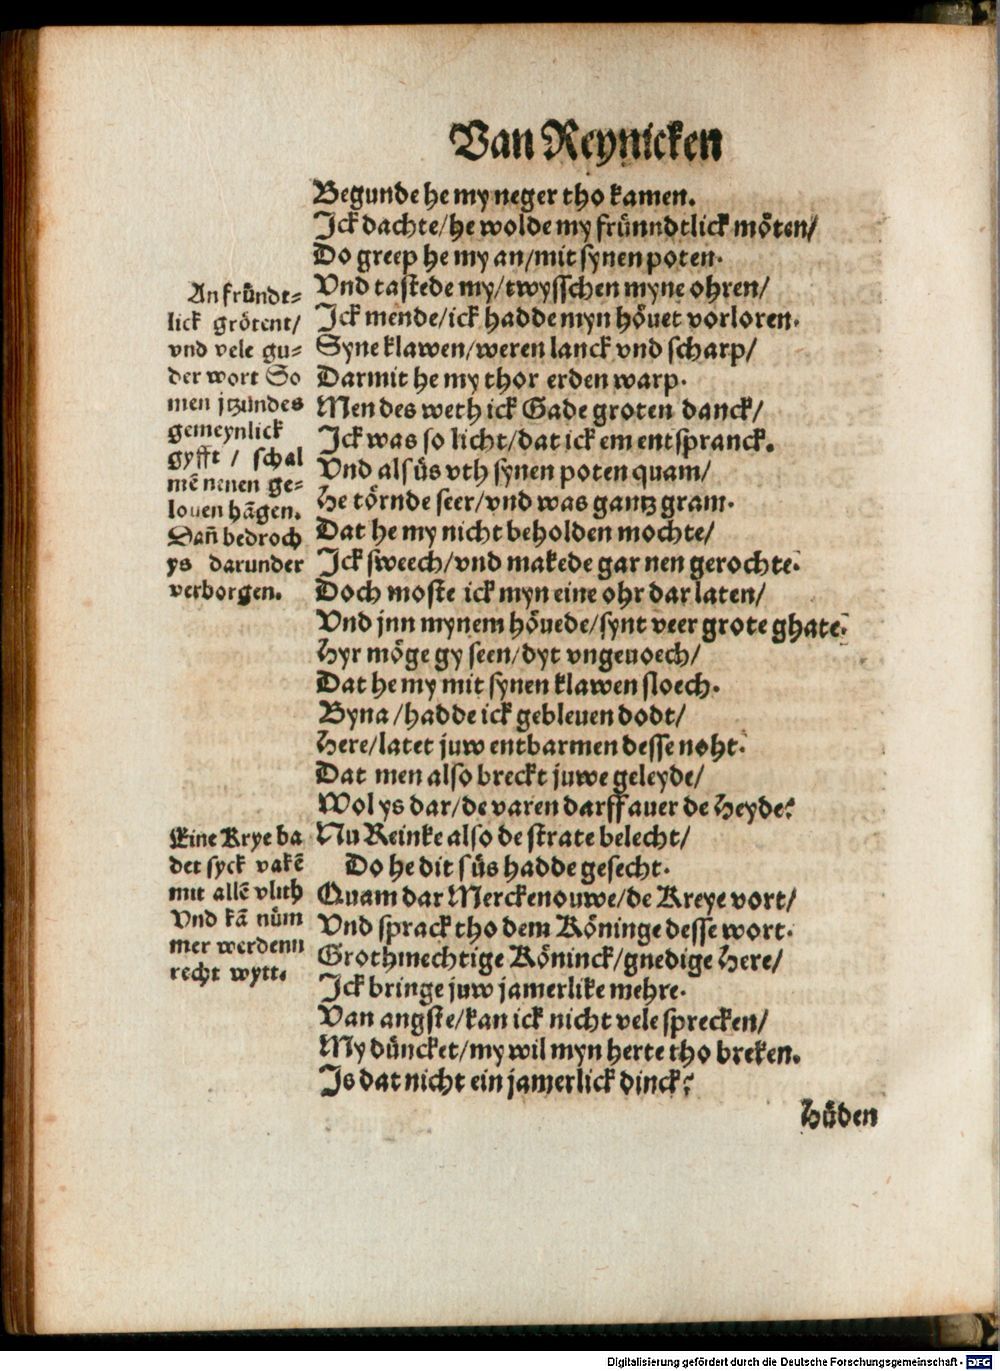 Van Reynicken
Begunde he my neger tho kamen.
Jck dachte/he wolde my fründtlick möten/
Do greep he my an/mit synen poten.
Vnd tastede my/twysschen myne ohren/
Jck mende/ick hadde myn höuet vorloren.
Syne klawen/weren lanck vnd scharp/
Darmit he my thor erden warp.
Men des weth ick Gade groten danck/
Jck was so licht/dat ick em entspranck.
Vnd als üs vth synen poten quam/
He törnde seer/vnd was gantz gram.
Dat he my nicht beholden mochte/
Jck sweech/vnd makede gar nen gerochte.
Doch moste ick myn eine ohr dar laten/
Vnd jnn mynem höuede/synt veer grote ghate.
Hyr möge gy seen/dyt vngeuoech/
Dat he my mit synen klawen sloech.
Byna/hadde ick gebleuen dodt/
Here/latet juw entbarmen desse noht.
Dat men also breckt juwe geleyde/
Wol ys dar/de varen darff auer de Heyde?
Nu Reinke also de strate belecht/
Do he dit süs hadde gesecht.
Quam dar Merckenouwe/de Kreye vort/
Vnd sprack tho dem Köninge desse wort.
Grothmechtige Köninck/gnedige Here/
Jck bringe juw jamerlike mehre.
Van angste/kan ick nicht vele sprecken/
My düncket/my wil myn herte tho breken.
Js dat nicht ein jamerlick dinck?
Hüden
An fründt-
lick grötent/
vnd vele gu-
der wort So
men jtzündes
gemeynlick
gyfft / schal
mē nenen ge-
louen hāgen.
Dañ bedroch
ys darunder
verborgen.
Eine Krye ba
det syck vakē
mit allē vlith
Vnd kā nüm
mer werdenn
recht wytt.
Digitalisierung gefördert durch die Deutsche Forschungsgemeinschaft - DFG